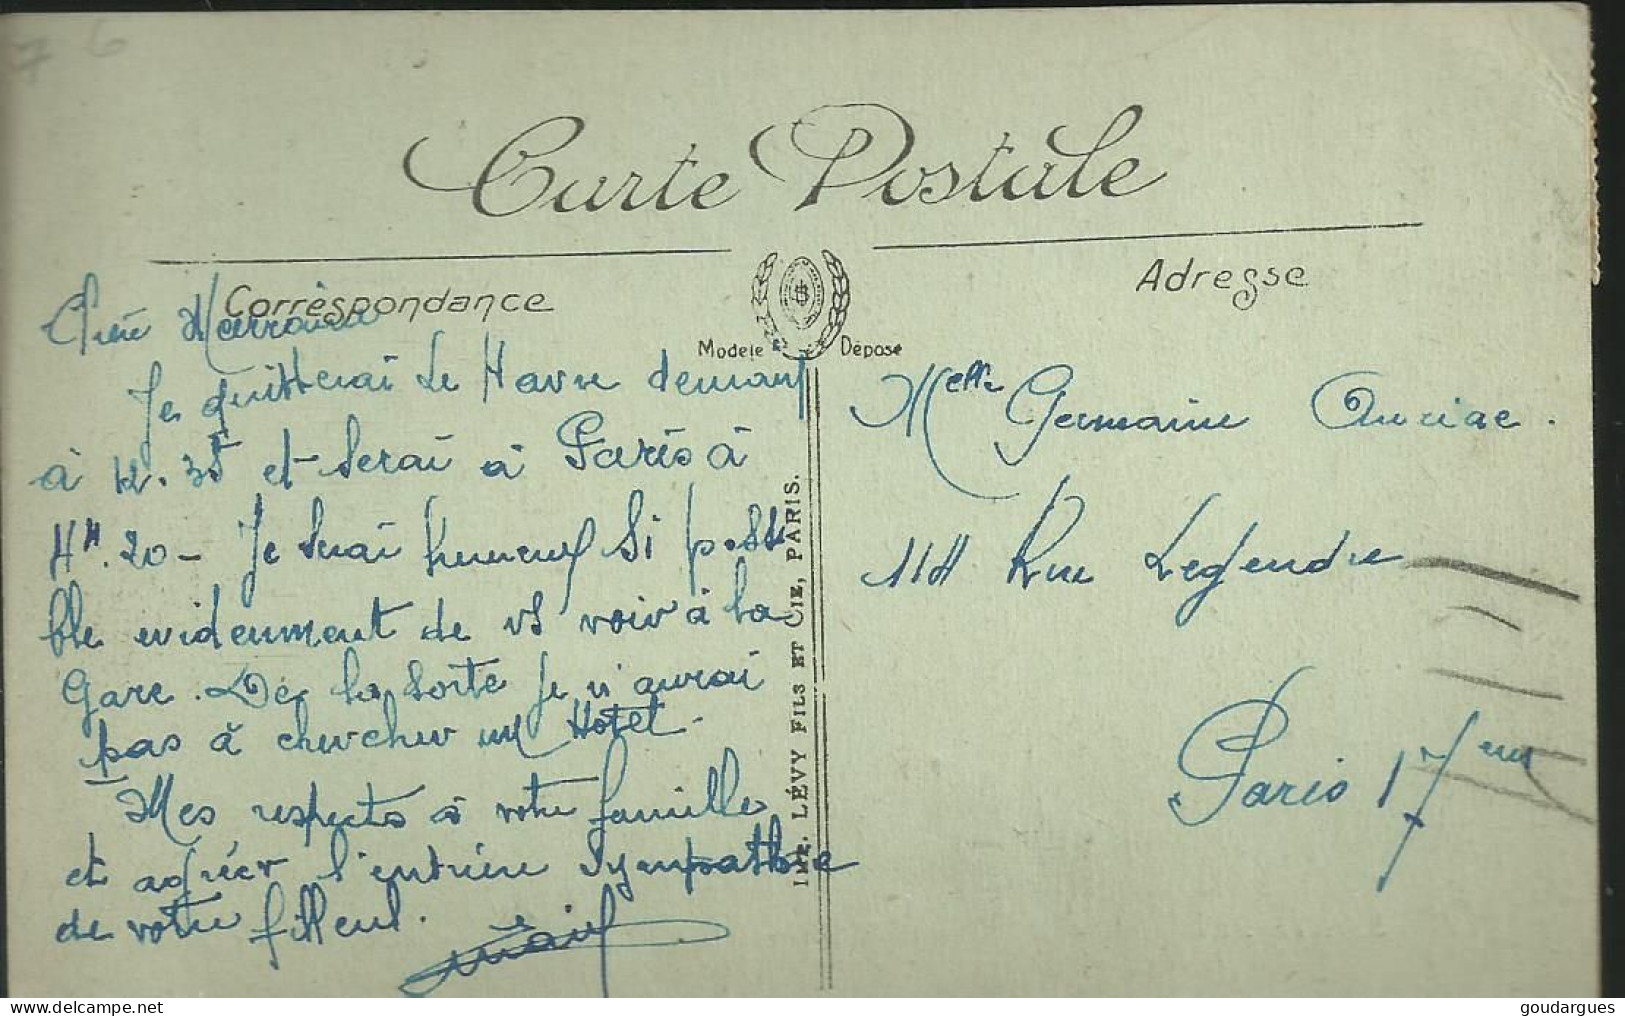 76
Carte Postale
Correspondance
Adresse
Modele Déposé
IMP. LÉVY FILS ET CIE, PARIS.
Marraine
Je quitterai Le Havre demain
à 12.35 et serai à Paris à
4H.20 - Je serai heureux si possi
ble evidemment de vs voir à la
Gare. De la sorte je n'aurai
pas à chercher un Hotel.
Mes respects à votre famille
et agréer l'entière sympathie
de votre filleul.
Melle Germaine Auriac.
114 Rue Legendre
Paris 17eme
goudargues © delcampe.net